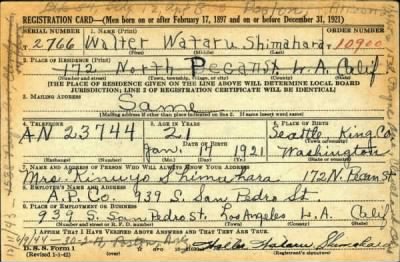 REGISTRATION CARD—(Men born on or after February 17, 1897 and on or before December 31, 1921)
SERIAL NUMBER 1. NAME (Print) ORDER NUMBER
T 2766 Walter Wataru Shimahara 10900
(First) (Middle) (Last)
2. PLACE OF RESIDENCE (Print)
172 North Pecan St L.A. Calif
(Number and street) (Town, township, village, or city) (County) (State)
[THE PLACE OF RESIDENCE GIVEN ON THE LINE ABOVE WILL DETERMINE LOCAL BOARD
JURISDICTION; LINE 2 OF REGISTRATION CERTIFICATE WILL BE IDENTICAL]
3. MAILING ADDRESS
Same
[Mailing address if other than place indicated on line 2. If same insert word same]
4. TELEPHONE 5. AGE IN YEARS 6. PLACE OF BIRTH
AN 23744 21 Seattle, King Co
DATE OF BIRTH (Town or county)
Jan. 17 1921 Washington
(Exchange) (Number) (Mo.) (Day) (Yr.) (State or country)
7. NAME AND ADDRESS OF PERSON WHO WILL ALWAYS KNOW YOUR ADDRESS
Mrs. Kinuyo Shimahara 172 N. Pecan St
8. EMPLOYER'S NAME AND ADDRESS
A.P. Co. 939 S. San Pedro St.
9. PLACE OF EMPLOYMENT OR BUSINESS
939 S. San Pedro St. Los Angeles L.A. Calif
(Number and street or R. F. D. number) (Town) (County) (State)
I AFFIRM THAT I HAVE VERIFIED ABOVE ANSWERS AND THAT THEY ARE TRUE.
D. S. S. Form 1
(Revised 1-1-42) (over)
Walter Wataru Shimahara